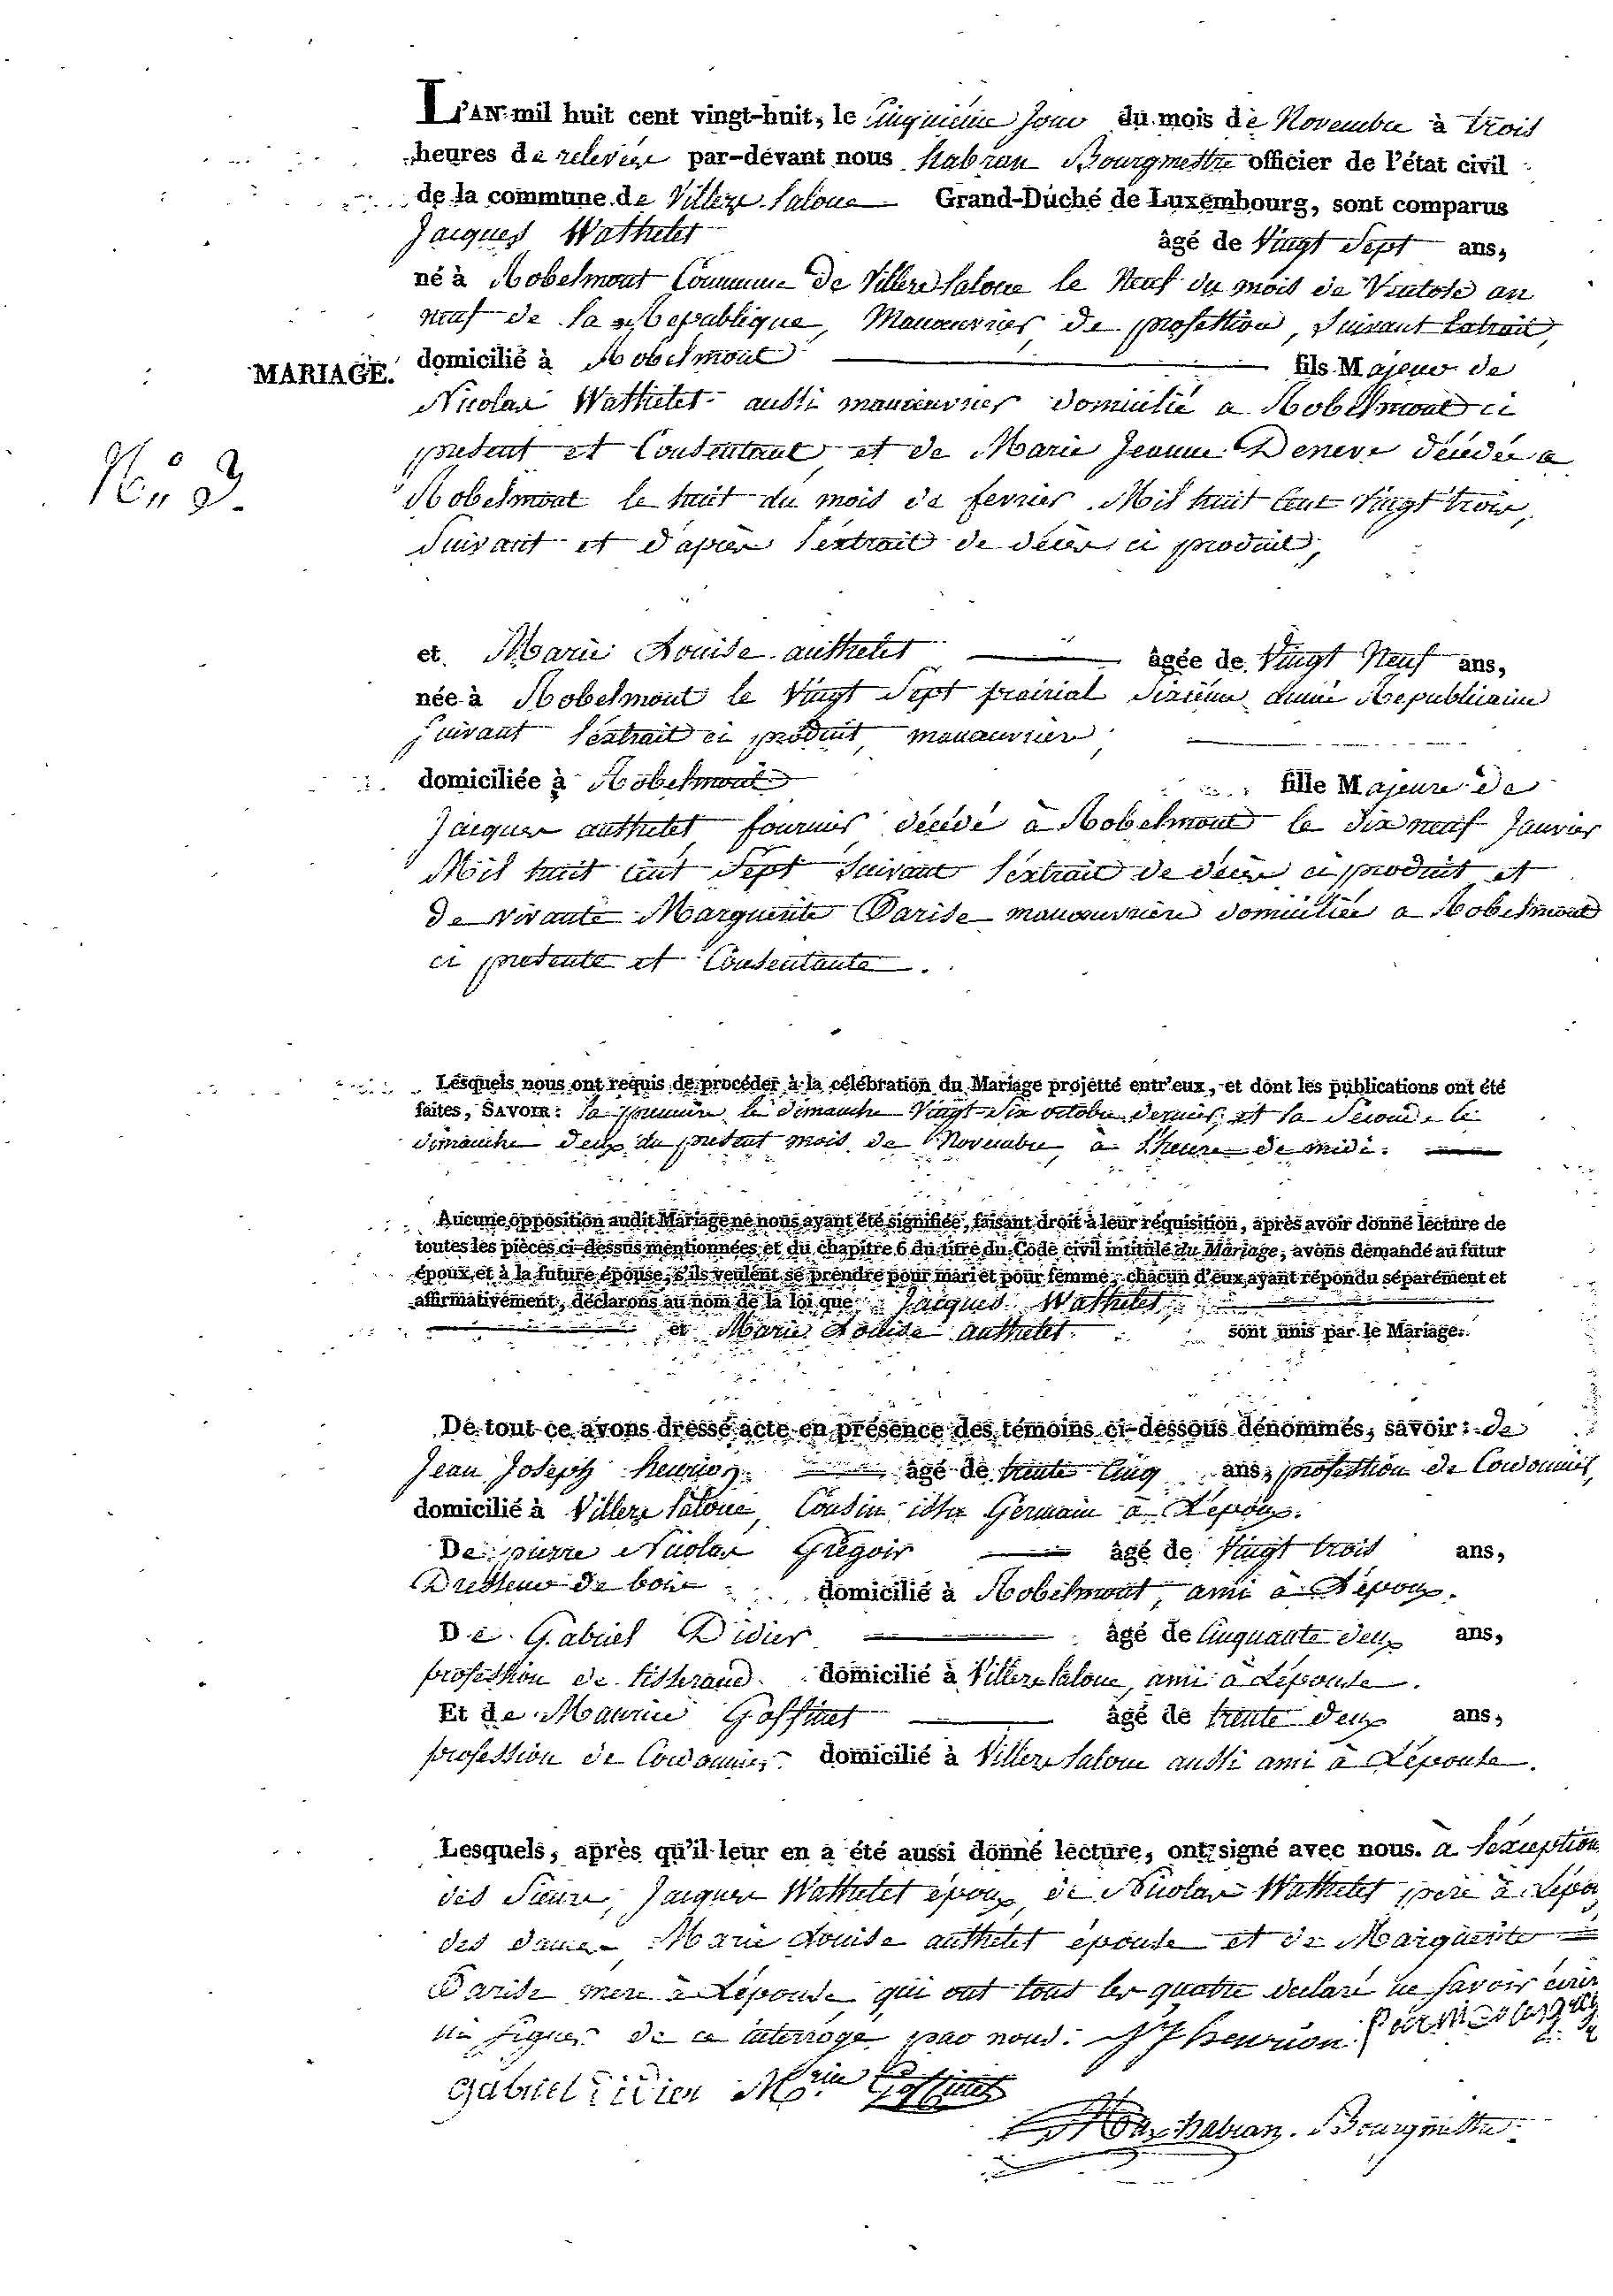 L'AN mil huit cent vingt-huit, le Cinquieme Jour du mois de Novembre à trois
heures de relevée par-devant nous habran Bourgmestre officier de l'état civil
de la commune de Villers laloue Grand-Duché de Luxembourg, sont comparus
Jacques Wathelet âgé de Vingt Sept ans,
né à Robelmont Commune de Villers laloue le Neuf du mois de Ventose an
neuf de la Republique, Manœuvrier de profession, Suivant Extrait,
MARIAGE.
domicilié à Robelmont fils Majeur de
Nicolas Wathelet aussi manœuvrier domicilié a Robelmont ci
N° 3.
present et Consentant et de Marie Jeanne Deneve décédée a
Robelmont le huit du mois de fevrier Mil huit Cent Vingt trois,
Suivant et d'après l'extrait de décès ci produit,
et Marie Louise authelet âgée de Vingt Neuf ans,
née à Robelmont le Vingt Sept prairial Sixieme année Republicaine
Suivant l'extrait ci produit, manœuvrière,
domiciliée à Robelmont fille Majeure de
Jacques authelet décédé à Robelmont le dix neuf Janvier
Mil huit Cent Sept Suivant l'extrait de décès ci produit et
de vivante Marguerite Parise manœuvrière domiciliée a Robelmont
ci presente et Consentante.
Lesquels nous ont requis de procéder à la célébration du Mariage projetté entr'eux, et dont les publications ont été
faites, SAVOIR: la premiere le dimanche Vingt Six octobre dernier, et la Seconde le
dimanche deux du present mois de Novembre à l'heure de midi.
Aucune opposition audit Mariage ne nous ayant été signifiée, faisant droit à leur réquisition, après avoir donné lecture de
toutes les pièces ci-dessus mentionnées et du chapitre 6 du titre du Code civil intitulé du Mariage, avons demandé au futur
époux et à la future épouse, s'ils veulent se prendre pour mari et pour femme, chacun d'eux ayant répondu séparément et
affirmativement, déclarons au nom de la loi que Jacques Wathelet
et Marie Louise authelet sont unis par le Mariage.
De tout ce avons dressé acte en présence des témoins ci-dessous dénommés, savoir: de
Jean Joseph henrion âgé de trente Cinq ans, profession de Cordonnier,
domicilié à Villers laloue, Cousin issu Germain à L'époux.
De pierre Nicolas Gregoir âgé de Vingt trois ans,
Dresseur de bois domicilié à Robelmont, ami à L'époux.
De Gabriel Didier âgé de Cinquante deux ans,
profession de tisserand domicilié à Villers laloue, ami à L'épouse.
Et de Maurice Goffinet âgé de trente deux ans,
profession de Cordonnier domicilié à Villers laloue aussi ami à L'épouse.
Lesquels, après qu'il leur en a été aussi donné lecture, ont signé avec nous. à l'exception
des Sieurs, Jacques Wathelet époux, de Nicolas Wathelet pere à L'époux
des dames Marie Louise authelet épouse et de Marguerite
Parise mere à L'épouse, qui ont tous les quatre declaré ne Savoir écrire
ni Signer de ce interrogé par nous. JJ henrion
gabriel Didier M.rice Goffinet
habran. Bourgmestre